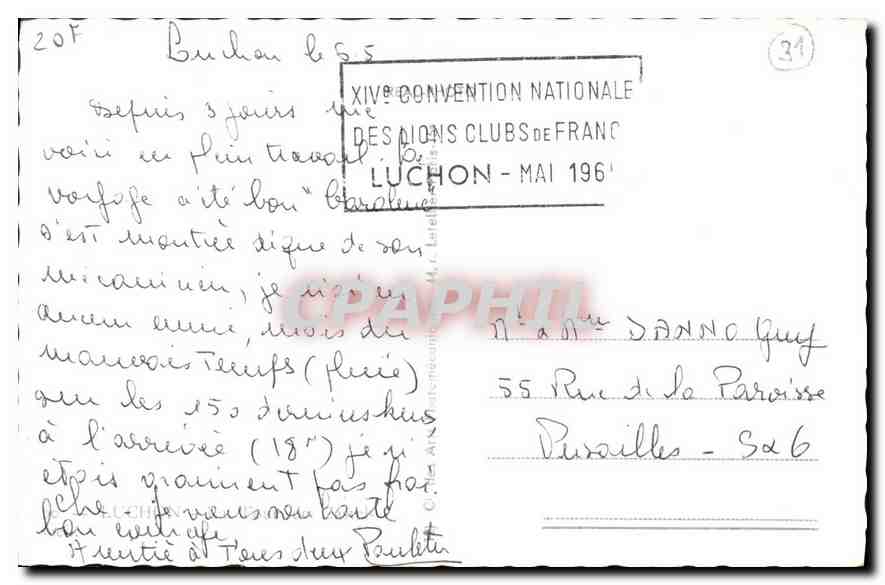 20F
Luchon le 5.5
31
XIVe CONVENTION NATIONALE
DES LIONS CLUBS DE FRANC
LUCHON - MAI 196
Depuis 3 jours me
voici en plein travail. Le
voyage a été bon "Caroline"
s'est montrée digne de son
mécanicien, je n'ai eu
aucun ennui, mais du
mauvais temps (pluie)
sur les 150 derniers kms
à l'arrivée (18h) je n'
étais vraiment pas fraî
che - je vous souhaite
bon courage,
Amitié à Tous deux Paulette
Mr & Mme DANNO Guy
55 Rue de la Paroisse
Versailles - S & O
LUCHON
CPAPHIL